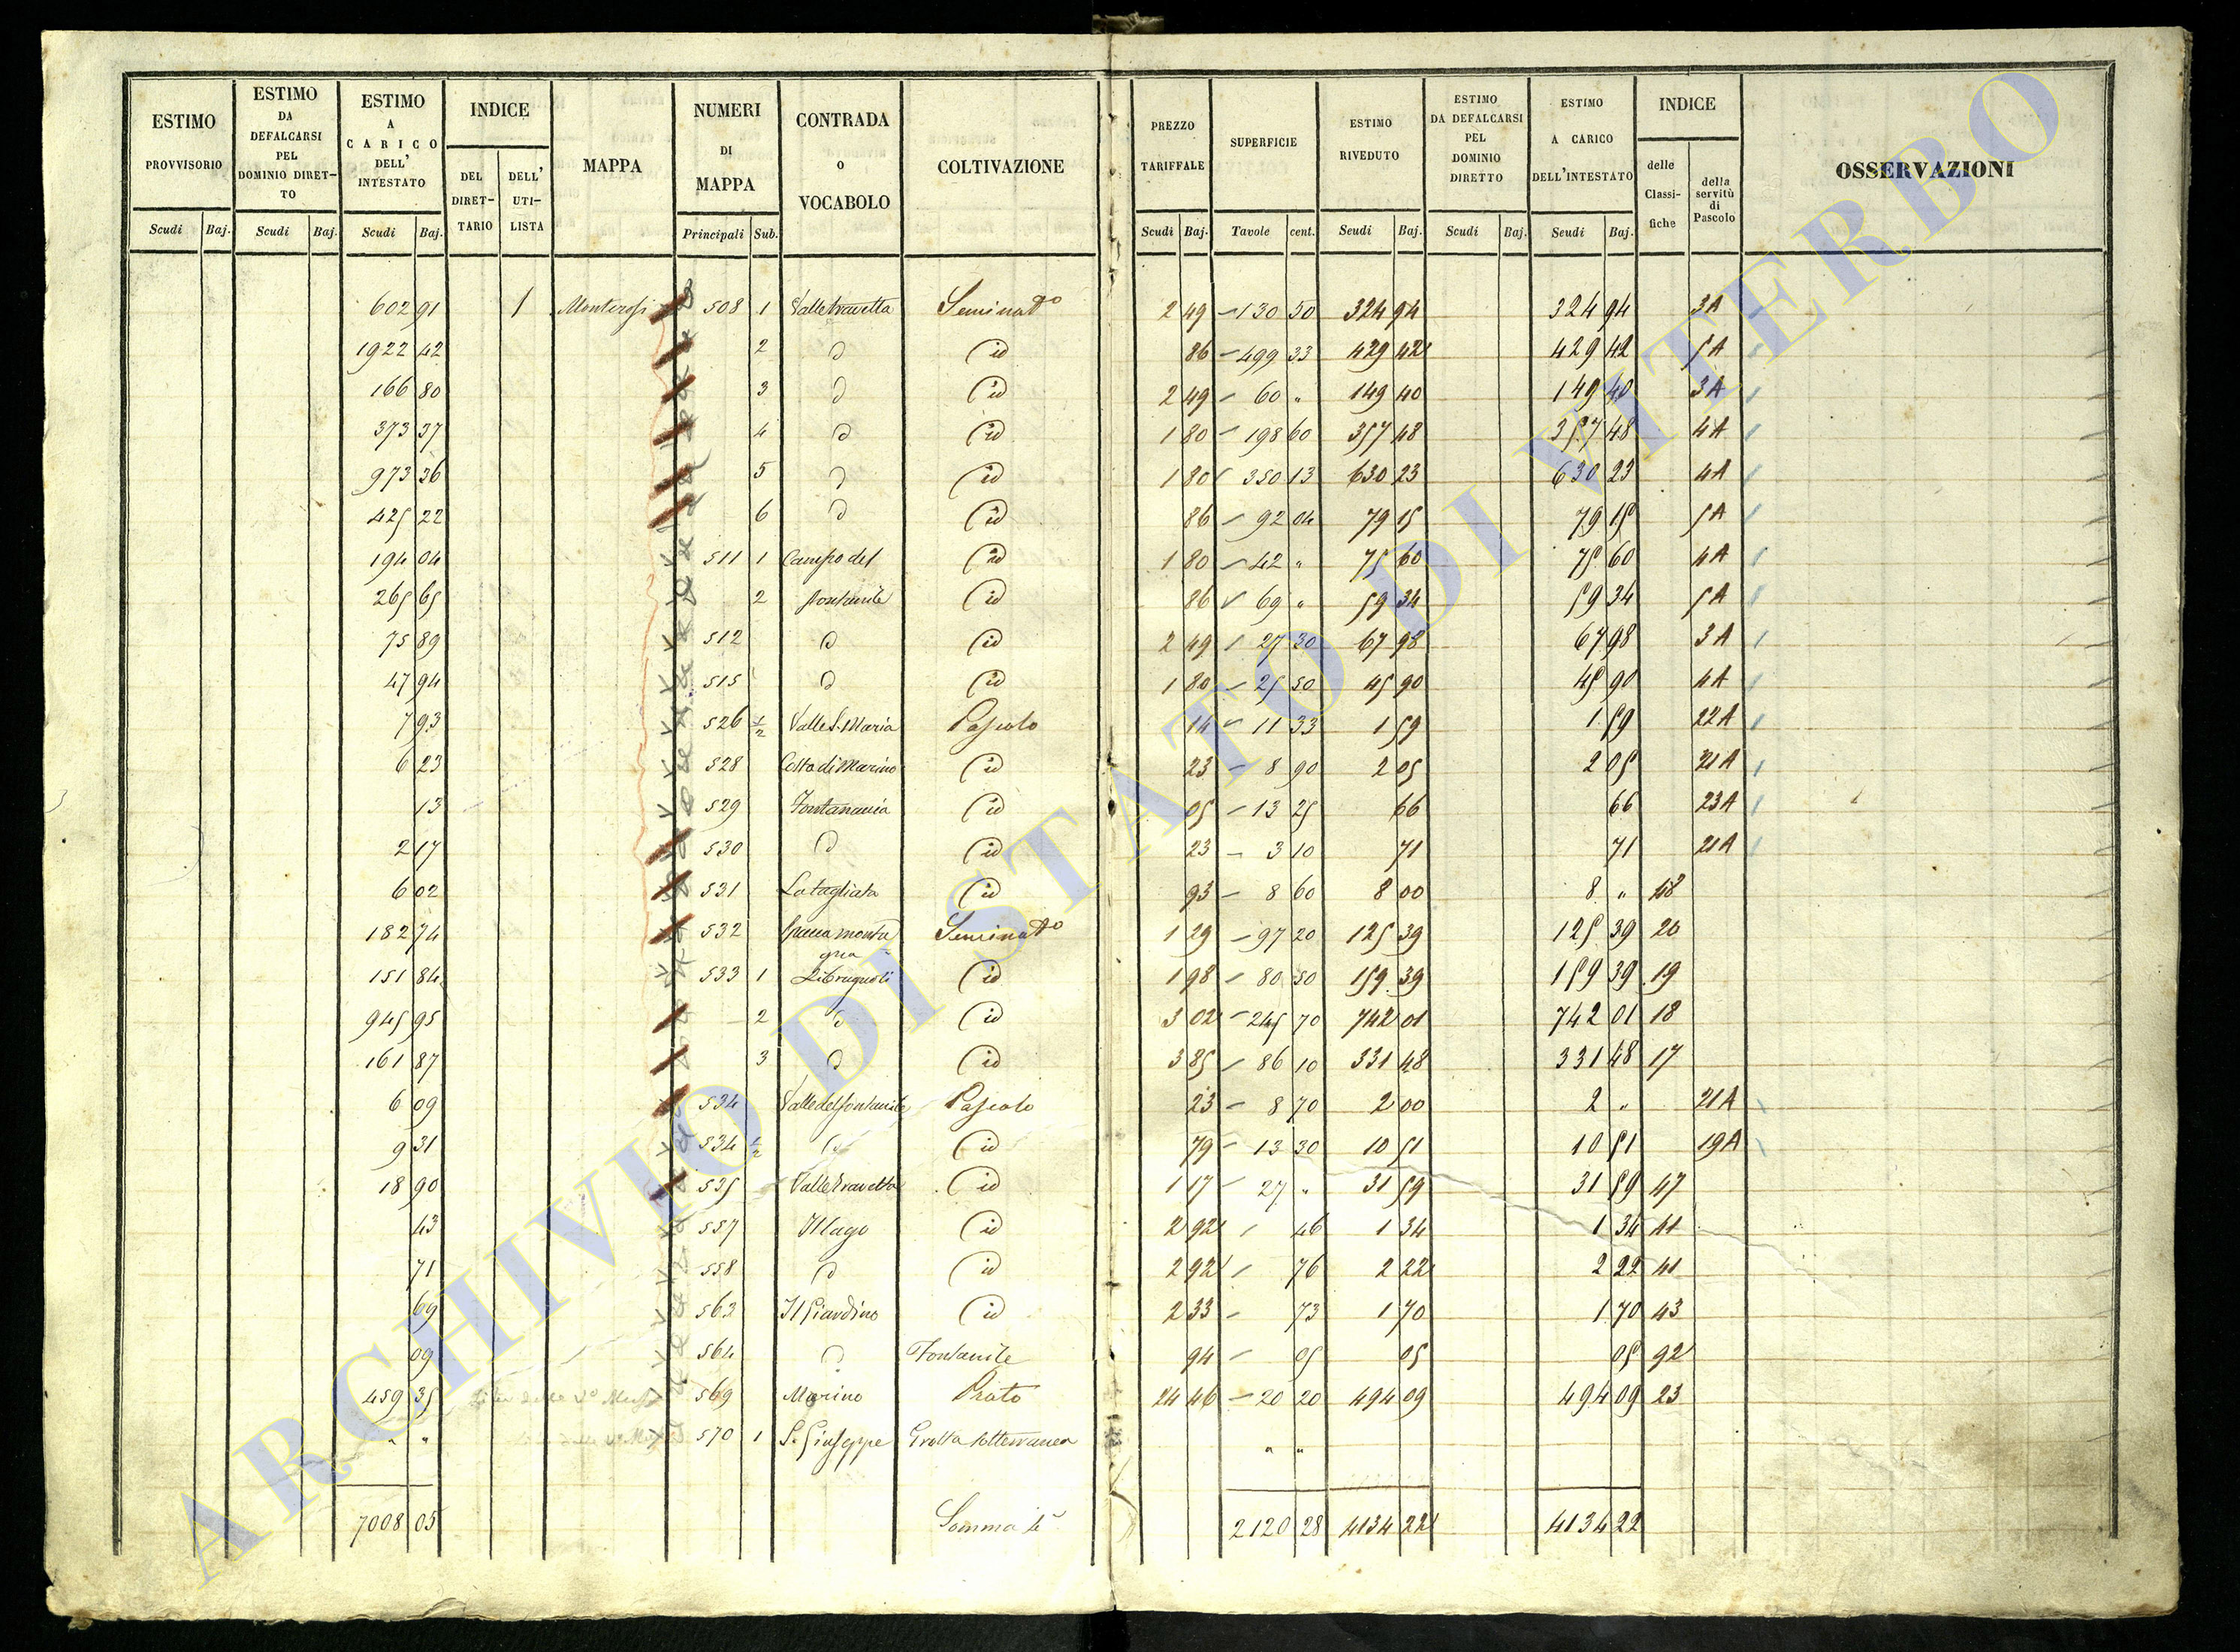 ESTIMO PROVVISORIO | ESTIMO DA DEFALCARSI PEL DOMINIO DIRETTO | ESTIMO A CARICO DELL' INTESTATO | INDICE | MAPPA | NUMERI DI MAPPA | CONTRADA O VOCABOLO | COLTIVAZIONE | PREZZO TARIFFALE | SUPERFICIE | ESTIMO RIVEDUTO | ESTIMO DA DEFALCARSI PEL DOMINIO DIRETTO | ESTIMO A CARICO DELL'INTESTATO | INDICE | OSSERVAZIONI
DEL DIRETTARIO | DELL' UTILISTA | delle Classifiche | della servitù di Pascolo
Scudi | Baj. | Scudi | Baj. | Scudi | Baj. | Principali | Sub. | Scudi | Baj. | Tavole | cent. | Scudi | Baj. | Scudi | Baj. | Scudi | Baj.
602 91 | 1 | Monterosi | 508 | 1 | Valle Travetta | Seminat.o | 2 49 | 130 50 | 324 94 | 324 94 | 3A
1922 42 | 2 | d | id | 86 | 499 33 | 429 42 | 429 42 | 5A
166 80 | 3 | d | id | 2 49 | 60 " | 149 40 | 149 40 | 3A
373 37 | 4 | d | id | 1 80 | 198 60 | 357 48 | 357 48 | 4A
973 36 | 5 | d | id | 1 80 | 350 13 | 630 23 | 630 23 | 4A
425 22 | 6 | d | id | 86 | 92 04 | 79 15 | 79 15 | 5A
194 04 | 511 | 1 | Campo del | id | 1 80 | 42 " | 75 60 | 75 60 | 4A
265 65 | 2 | fontanile | id | 86 | 69 " | 59 34 | 59 34 | 5A
75 89 | 512 | d | id | 2 49 | 27 30 | 67 98 | 67 98 | 3A
47 94 | 515 | d | id | 1 80 | 25 50 | 45 90 | 45 90 | 4A
7 93 | 526 | 1/2 | Valle S. Maria | Pascolo | 14 | 11 33 | 1 59 | 1 59 | 22A
6 23 | 528 | Costa di Marino | id | 23 | 8 90 | 2 05 | 2 05 | 21A
13 | 529 | id | 05 | 13 25 | 66 | 66 | 23A
2 17 | 530 | d | id | 23 | 3 10 | 71 | 71 | 21A
6 02 | 531 | La tagliata | id | 93 | 8 60 | 8 00 | 8 " | 48
182 74 | 532 | monta | Seminat.o | 1 29 | 97 20 | 125 39 | 125 39 | 20
gna
151 84 | 533 | 1 | id | 1 98 | 80 50 | 159 39 | 159 39 | 19
945 95 | 2 | d | id | 3 02 | 245 70 | 742 01 | 742 01 | 18
161 87 | 3 | d | id | 3 85 | 86 10 | 331 48 | 331 48 | 17
6 09 | 534 | Valle del fontanile | Pascolo | 23 | 8 70 | 2 00 | 2 " | 21A
9 31 | 534 | 1/2 | d | id | 79 | 13 30 | 10 51 | 10 51 | 19A
18 90 | 535 | Valle Travetta | id | 1 17 | 27 " | 31 59 | 31 59 | 47
43 | 557 | Il lago | id | 2 92 | 46 | 1 34 | 1 34 | 41
71 | 558 | d | id | 2 92 | 76 | 2 22 | 2 22 | 41
69 | 563 | Il Giardino | id | 2 33 | 73 | 1 70 | 1 70 | 43
09 | 564 | d | Fontanile | 94 | 05 | 05 | 05 | 92
459 35 | 569 | Marino | Prato | 24 46 | 20 20 | 494 09 | 494 09 | 23
" " | 570 | 1 | S. Giuseppe | Grotta sotterranea | " "
7008 05 | Somma | 2120 28 | 4134 22 | 4134 22
ARCHIVIO DI STATO DI VITERBO